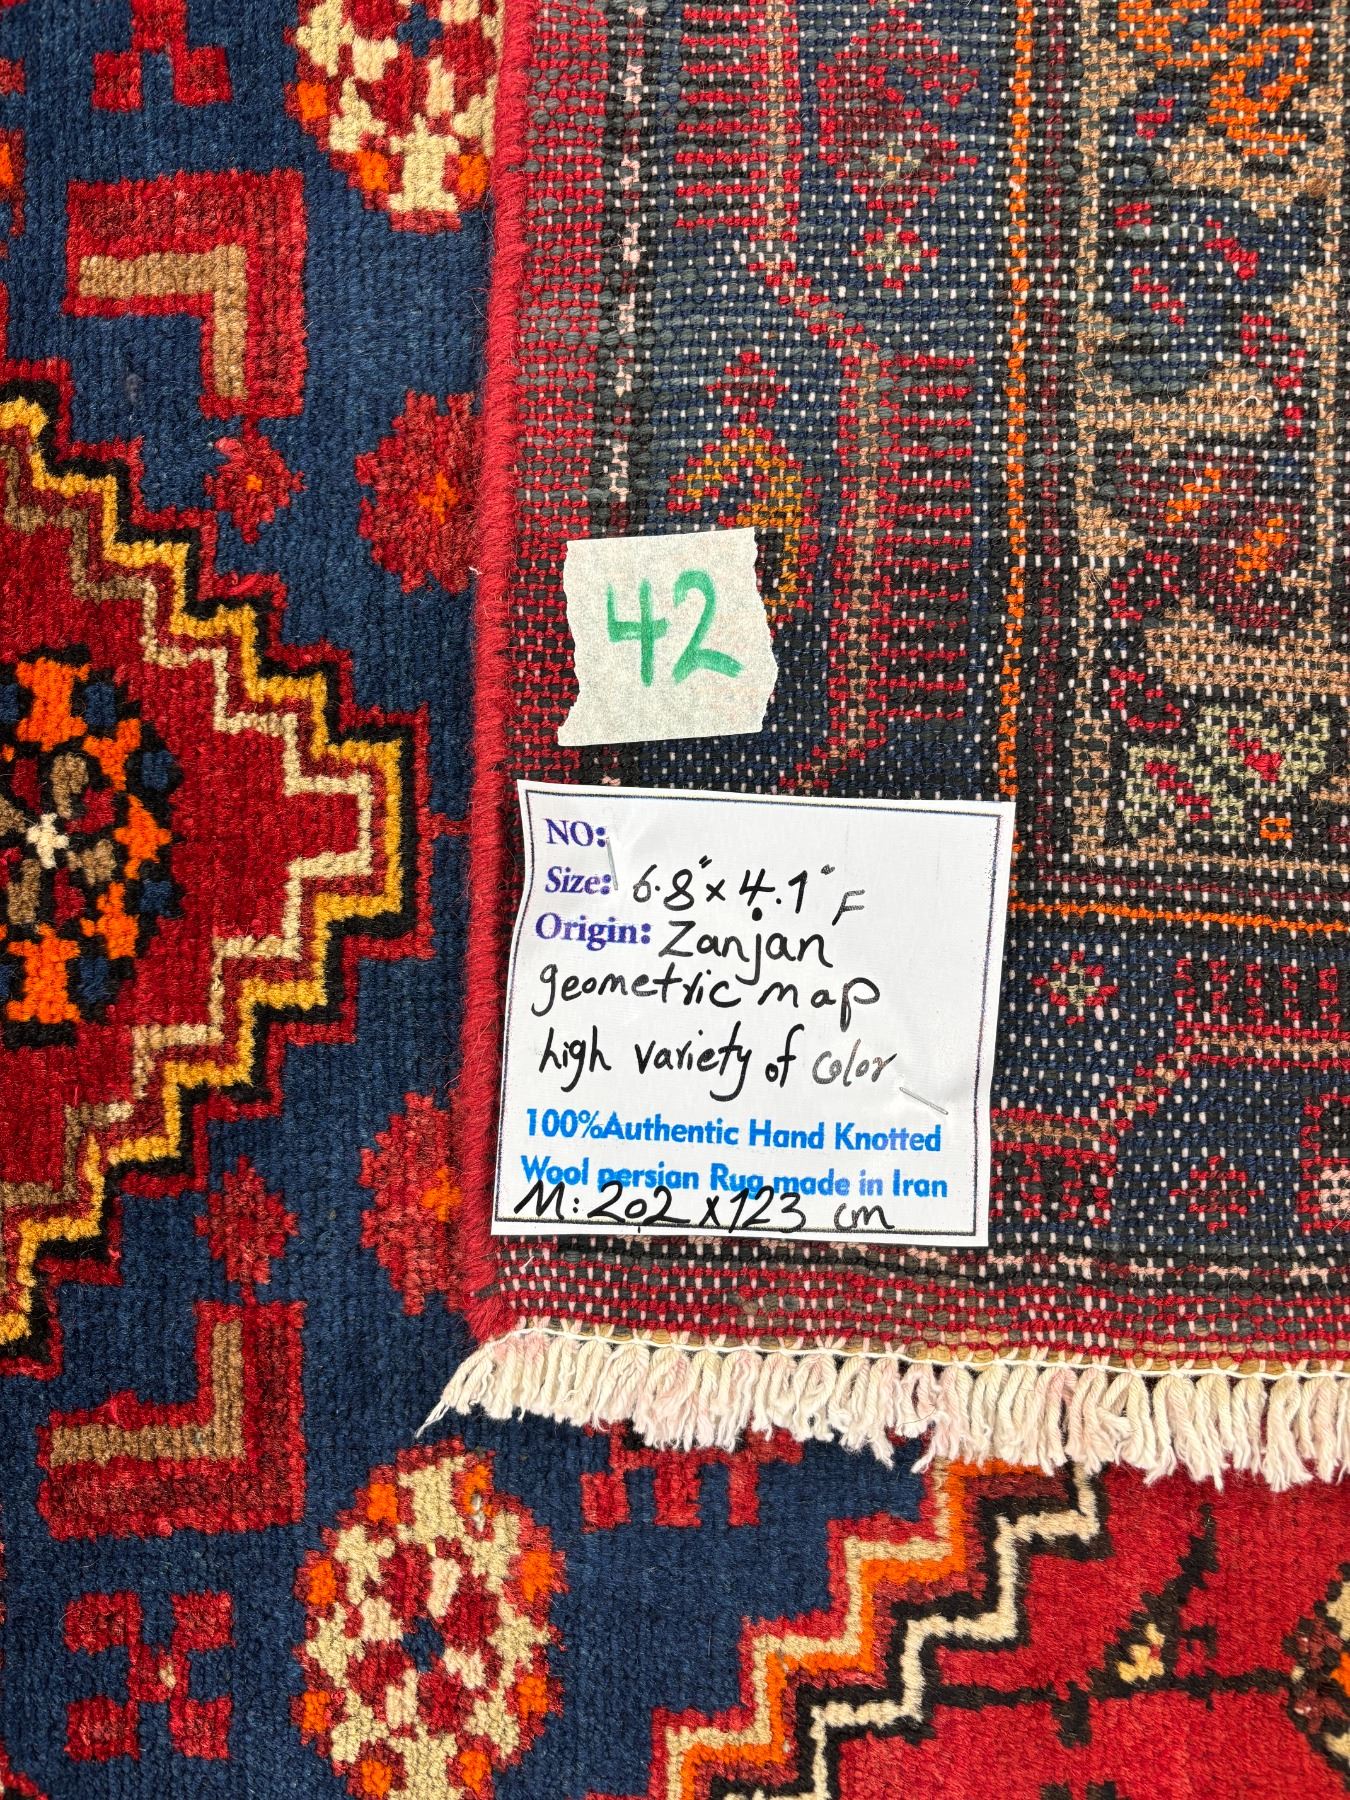 42
NO:
Size: 6.8" x 4.1" F
Origin: Zanjan
geometric map
high variety of color
100%Authentic Hand Knotted
Wool persian Rug made in Iran
M: 202 x 123 cm